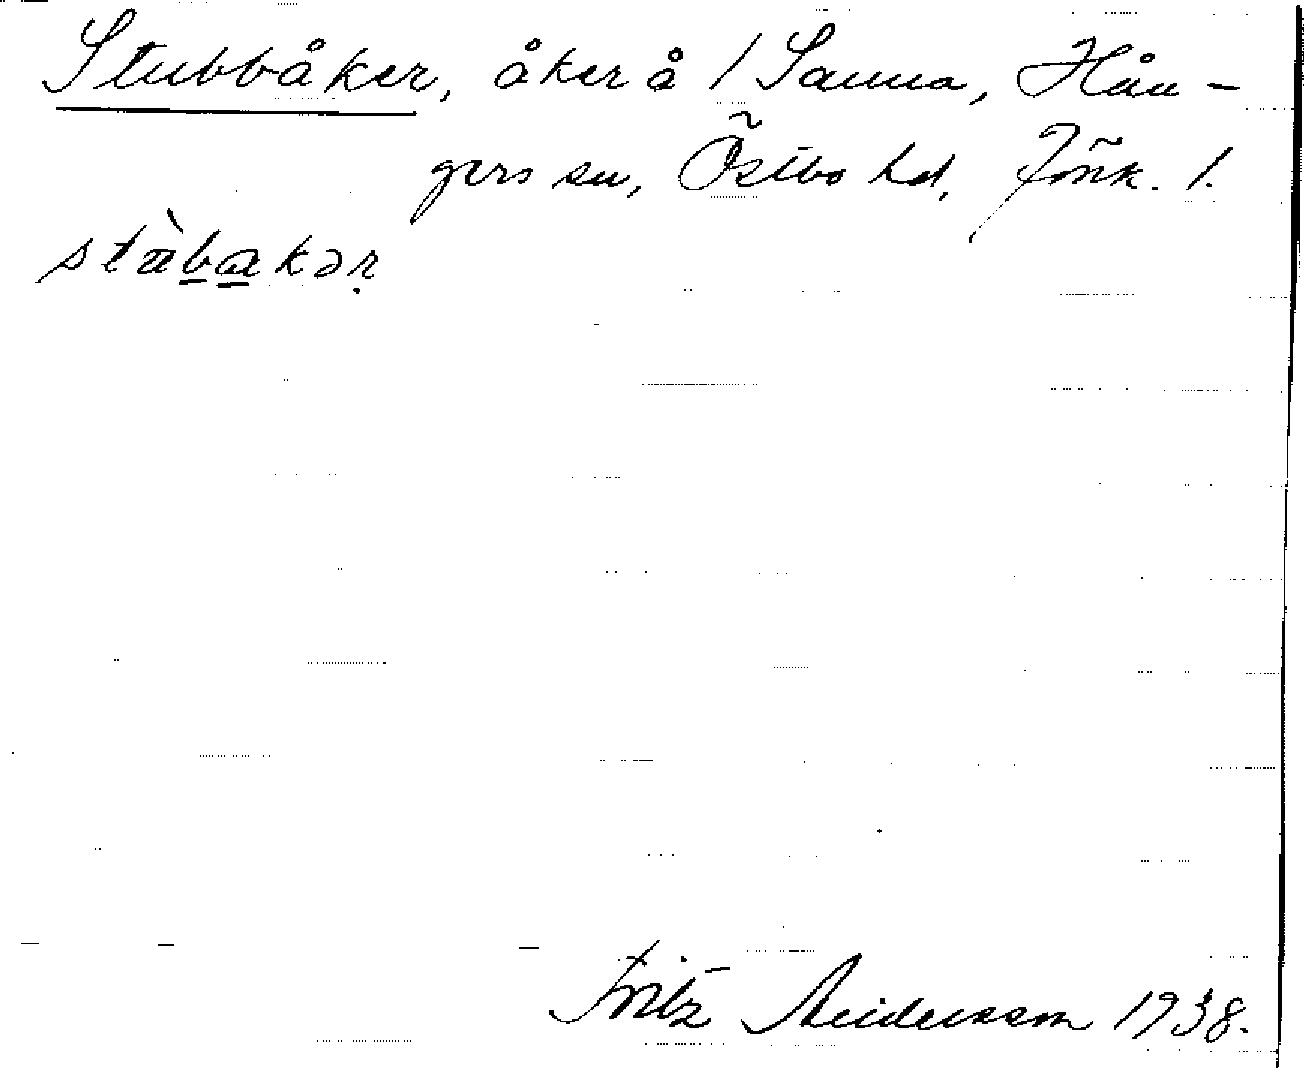 Stubbåker, åker å /Sanna, Hån-
gers sn, Östbo hd, Jönk. l.
stùbakər
Fritz Andersson 1938.